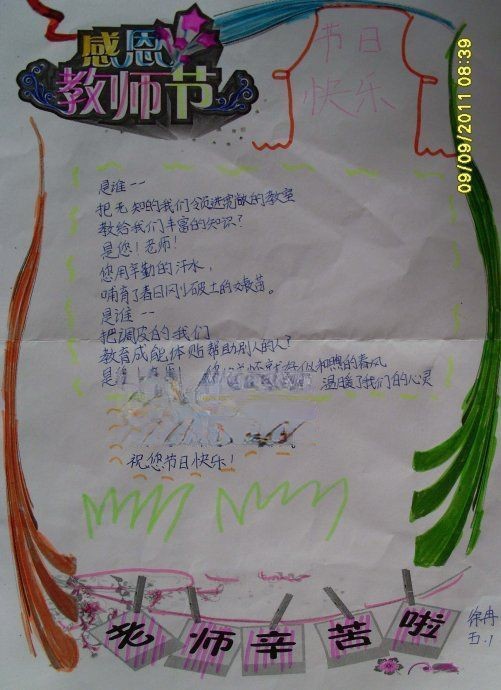 感恩
教师节
节日
快乐
09/09/2011 08:39
是谁——
把无知的我们领进宽敞的教室
教给我们丰富的知识?
是您!老师!
您用辛勤的汗水,
哺育了春日刚破土的嫩苗。
是谁——
把调皮的我们
教育成能体贴帮助别人的人?
是 和煦的春风
温暖了我们的心灵
祝您节日快乐!
老师辛苦啦
徐冉
五.1